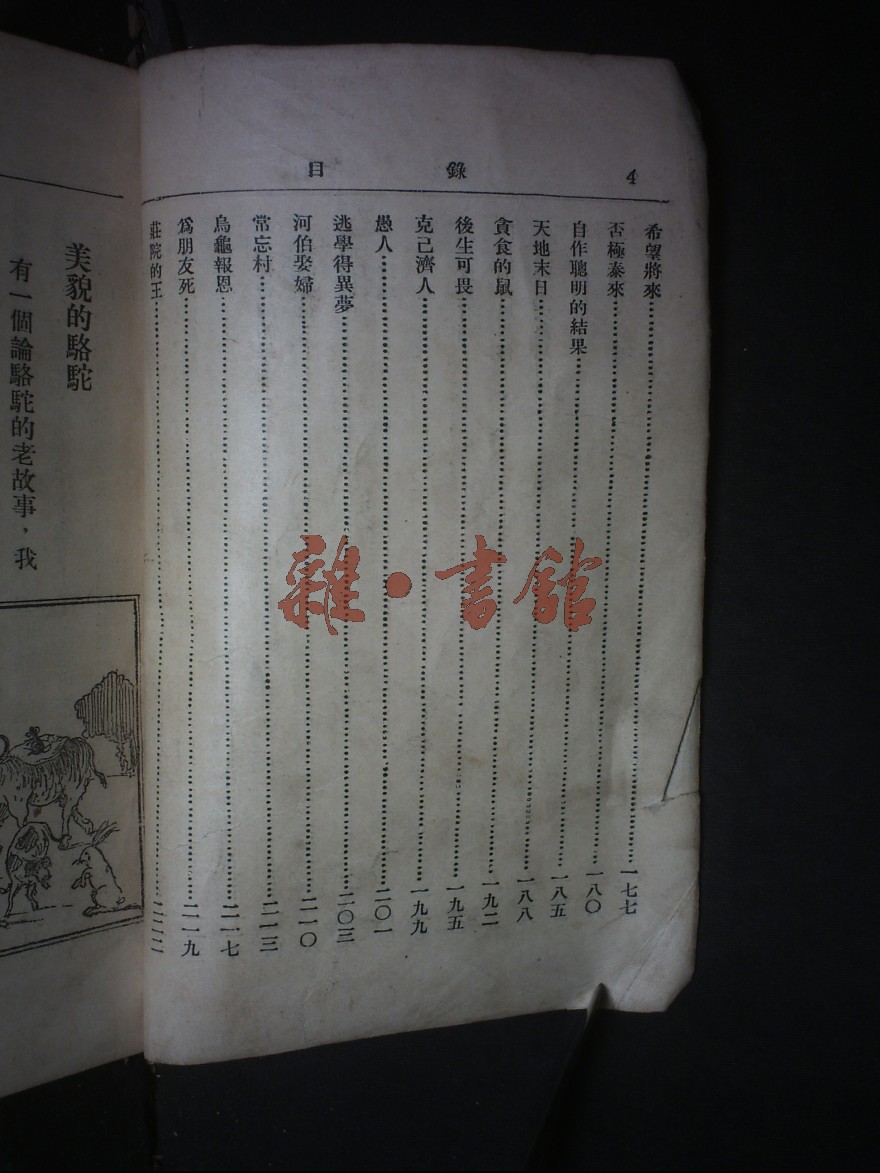 目錄 4
希望將來……一七七
否極泰來……一八〇
自作聰明的結果……一八五
天地末日……一八八
貪食的鼠……一九二
後生可畏……一九五
克己濟人……一九九
愚人……二〇一
逃學得異夢……二〇三
河伯娶婦……二一〇
常忘村……二一三
烏龜報恩……二一七
爲朋友死……二一九
莊院的王……二二二
美貌的駱駝
有一個論駱駝的老故事，我
雜·書館